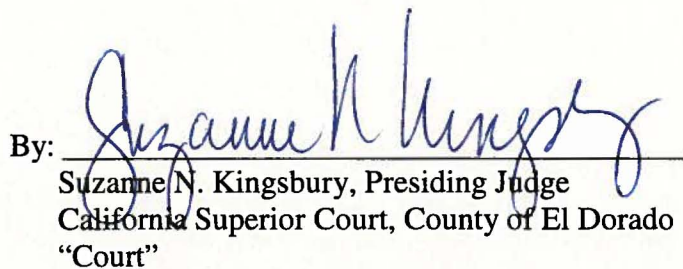 Suzanne N Kingsbury
By:
Suzanne N. Kingsbury, Presiding Judge
California Superior Court, County of El Dorado
“Court”